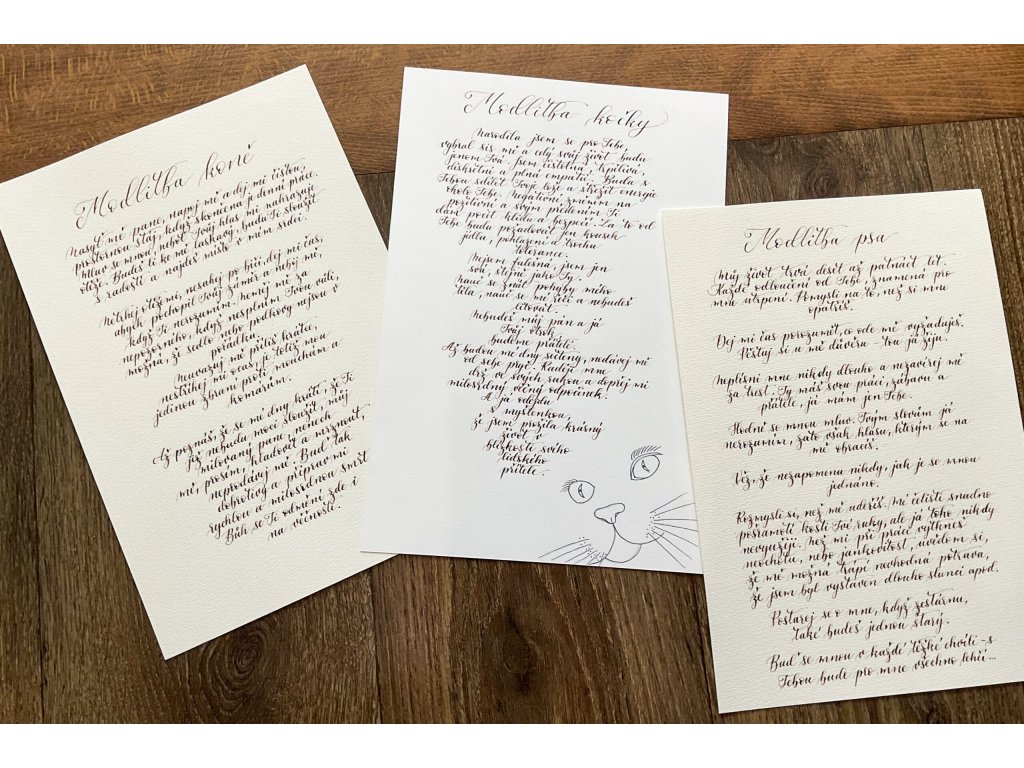 Modlitba koně
Ó můj pane, napoj mě a dej mi čistou,
prostornou stáj, když skončena je denní práce.
Mluv se mnou, neboť Tvůj hlas mi nahrazuje
otěže. Budeš li ke mě laskavý, budu Ti sloužit
s radostí a najdeš místo v mém srdci.
Netrhej otěžemi, nesahej po biči, dej mi čas,
abych pochopil Tvůj záměr a nebij mě,
když Ti nerozumím. Neměj mě za
nepozorného, když nesplním Tvou vůli,
možná, že sedlo nebo podkovy nejsou v
pořádku.
Neuvazuj mě příliš krátce,
nestříhej mi ocas, je totiž mou
jedinou zbraní proti mouchám a
komárům.
Až poznáš, že se mé dny krátí, že Ti
již nebudu moci sloužit, můj
milovaný pane, nenech
mě, prosím, hladovět a mrznout,
neprodávej mě. Buď tak
dobrotivý a připrav mi
rychlou a milosrdnou smrt
Bůh se Ti odmění zde i
na věčnosti.
Modlitba kočky
Narodila jsem se pro Tebe,
vybral sis mě a celý svůj život budu
jenom Tvá. Jsem čistotná, trpělivá,
diskrétní a plná empatií. Budu s
Tebou sdílet Tvoje lože a střežit energie
okolo Tebe. Negativní změním na
pozitivní a svým předením Ti
dám pocit klidu a bezpečí. Za to od
Tebe budu požadovat jen kousek
jídla, pohlazení a trochu
tolerance.
Nejsem falešná, jsem jen
svá, stejně jako Ty.
Nauč se znát pohyby mého
těla, nauč se mé řeči a nebudeš
litovat.
Nebudeš můj pán a já
Tvůj otrok,
budeme přátelé.
Až budou mé dny sečteny, nedávej mě
od sebe pryč. Raději mne
drž ve svých rukou a dopřej mi
milosrdný věčný odpočinek.
A já odejdu
s myšlenkou,
že jsem prožila krásný
život v
blízkosti svého
lidského
přítele.
Modlitba psa
Můj život trvá deset až patnáct let.
Každé odloučení od Tebe, znamená pro
mne utrpení. Pomysli na to, než si mne
opatříš.
Dej mi čas porozumět, co ode mě vyžaduješ.
Pěstuj si u mě důvěru - tou já žiju.
Neplísni mne nikdy dlouho a nezavírej mě
za trest. Ty máš svou práci, zábavu a
přátele, já mám jen Tebe.
Hodně se mnou mluv. Tvým slovům já
nerozumím, zato však hlasu, kterým se na
mě obracíš.
Věz, že nezapomenu nikdy, jak je se mnou
jednáno.
Rozmysli si, než mě udeříš. Mé čelisti snadno
pošramotí kosti Tvé ruky, ale já toho nikdy
nevyužiji. Než mi při práci vytkneš
neochotu, nebo jankovitost, uvědom si,
že mě možná trápí nevhodná potrava,
že jsem byl vystaven dlouho slunci apod.
Postarej se o mne, když zestárnu,
také budeš jednou starý.
Buď se mnou v každé těžké chvíli - s
Tebou bude pro mne všechno lehčí...